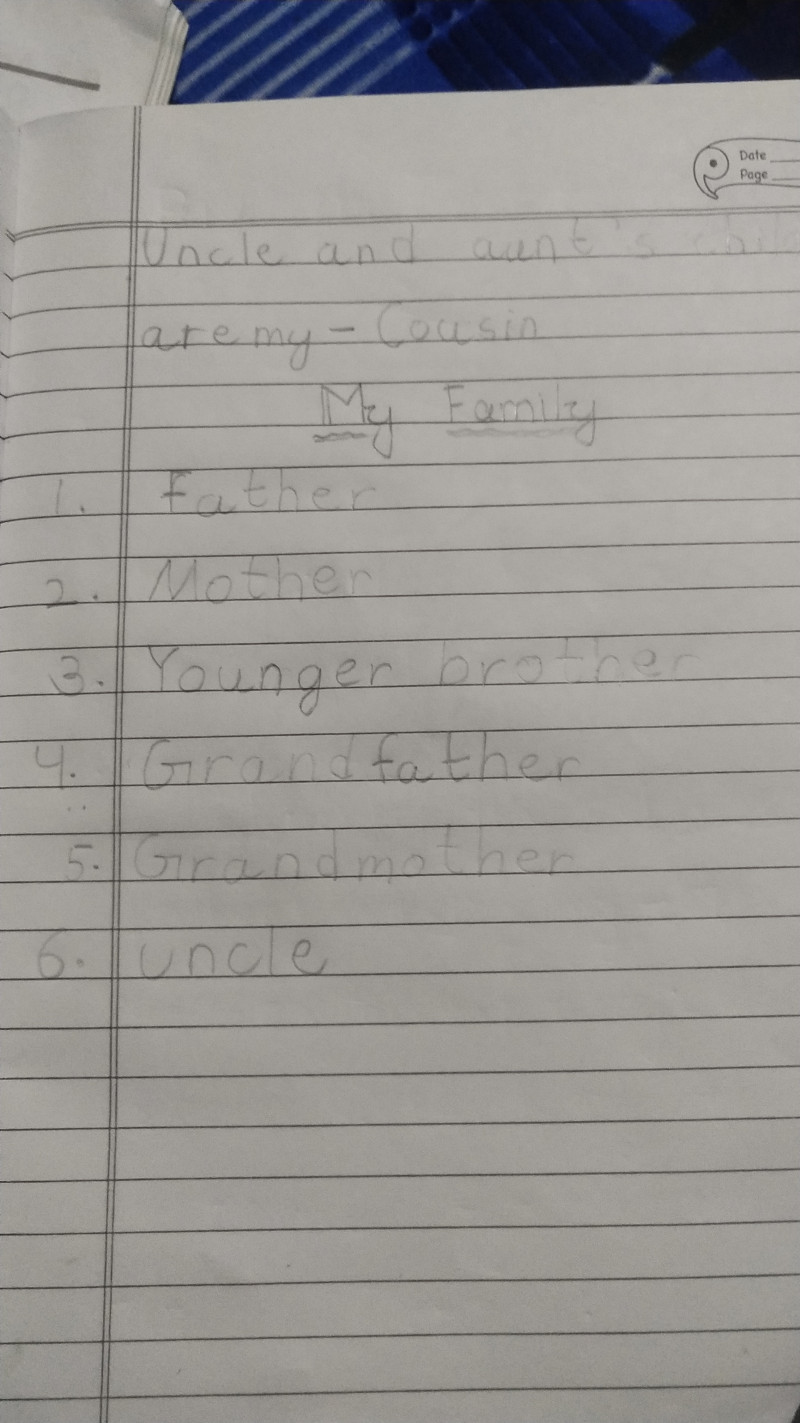 Date
Page
Uncle and aunt's
are my - Cousin
My Family
1. Father
2. Mother
3. Younger brother
4. Grandfather
5. Grandmother
6. uncle